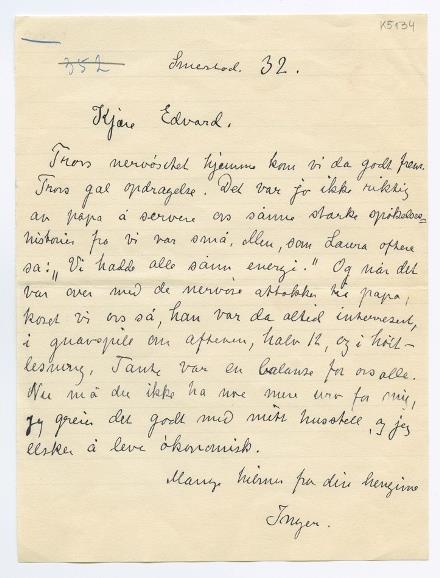 K5134
352
Smestad. 32.
Kjære Edvard.
Trors nervøsitet hjemme kom vi da godt frem.
Trors gal opdragelse. Det var jo ikke riktig
av papa å servere oss sånne starke spökelses=
historier fra vi var små. Men, som Laura oftere
sa: „Vi hadde alle sånn energi." Og når det
var over med de nervøse attakker til papa,
koset vi oss så, han var da altid interessert,
i gnavspill om aftenen, halv 12, og i höit-
lesning. Tante var en balanse for oss alle.
Nu må du ikke ha noe mere uro for mig,
jeg greier det godt med mitt husstell, og jeg
elsker å leve ökonomisk.
Mange hilsner fra din hengivne
Inger.